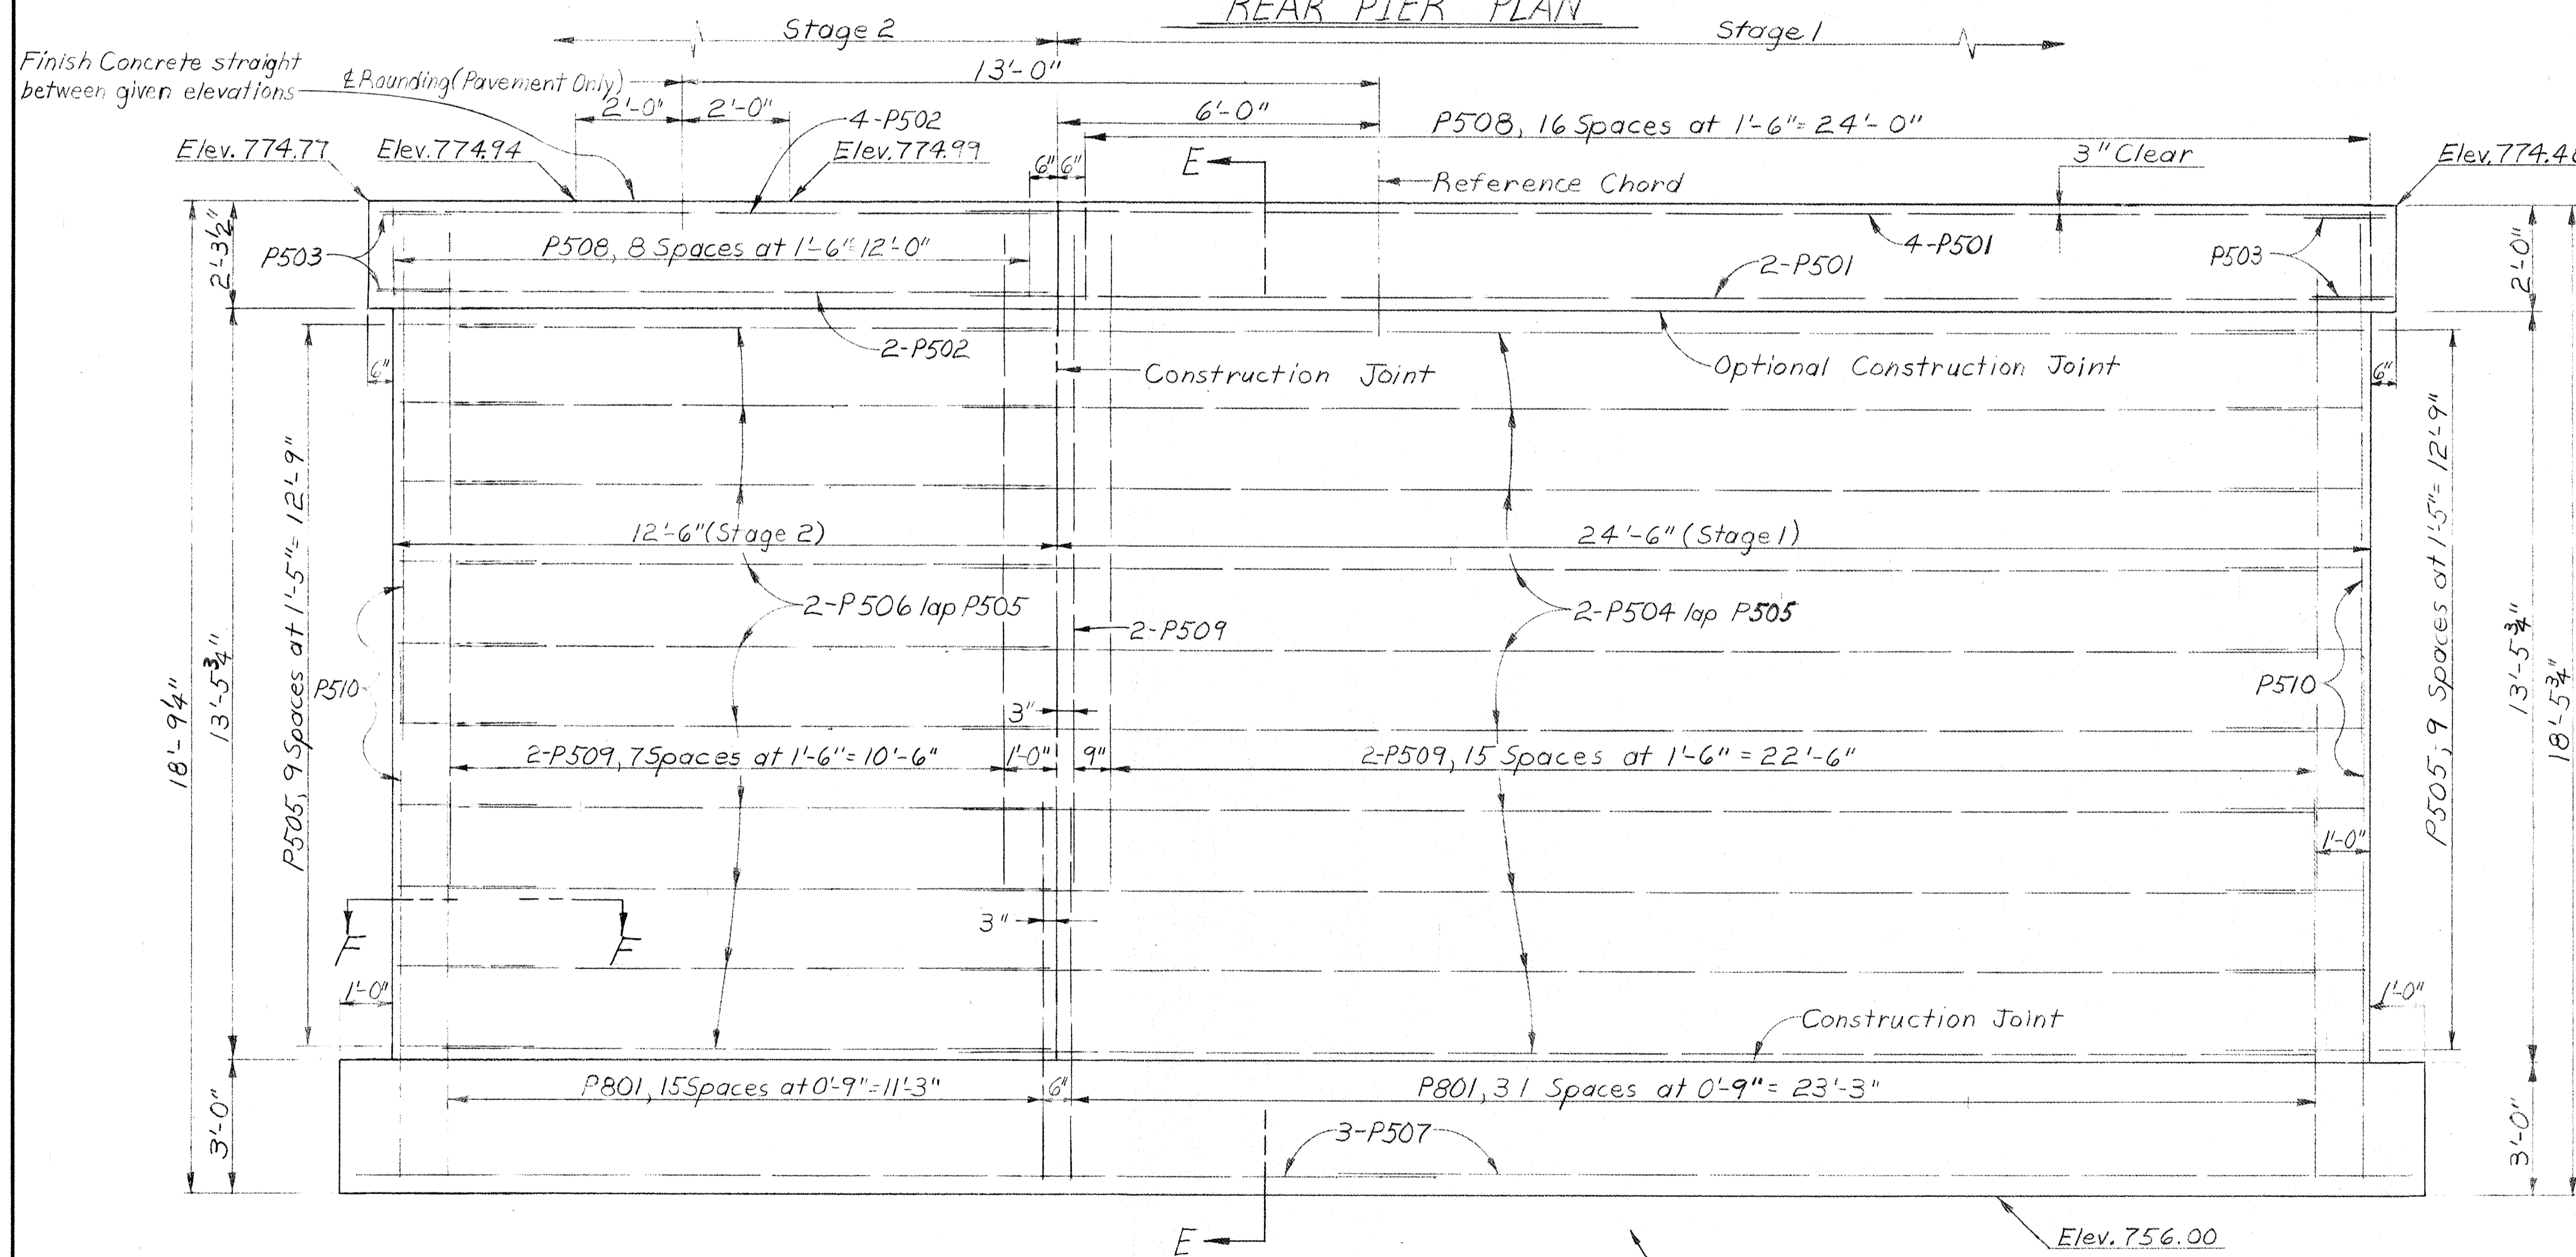 REAR PIER PLAN
Stage 2
Stage 1
Finish Concrete straight
between given elevations
℄ Rounding (Pavement Only)
13'-0"
2'-0"
2'-0"
4-P502
6'-0"
P508, 16 Spaces at 1'-6"= 24'-0"
Elev. 774.77
Elev. 774.94
Elev. 774.99
6"
6"
E
3" Clear
Reference Chord
2'-3½"
P503
P508, 8 Spaces at 1'-6"= 12'-0"
4-P501
2-P501
P503
2'-0"
2-P502
Construction Joint
Optional Construction Joint
6"
6"
P505, 9 Spaces at 1'-5"= 12'-9"
12'-6" (Stage 2)
24'-6" (Stage 1)
P505, 9 Spaces at 1'-5"= 12'-9"
2-P506 lap P505
2-P504 lap P505
2-P509
18'-9¼"
13'-5¾"
P510
P510
13'-5¾"
18'-5¾"
3"
2-P509, 7 Spaces at 1'-6"= 10'-6"
1'-0"
9"
2-P509, 15 Spaces at 1'-6" = 22'-6"
1'-0"
3"
F
F
1'-0"
1'-0"
Construction Joint
3'-0"
P801, 15 Spaces at 0'-9"=11'-3"
6"
P801, 31 Spaces at 0'-9"= 23'-3"
3'-0"
3-P507
E
Elev. 756.00